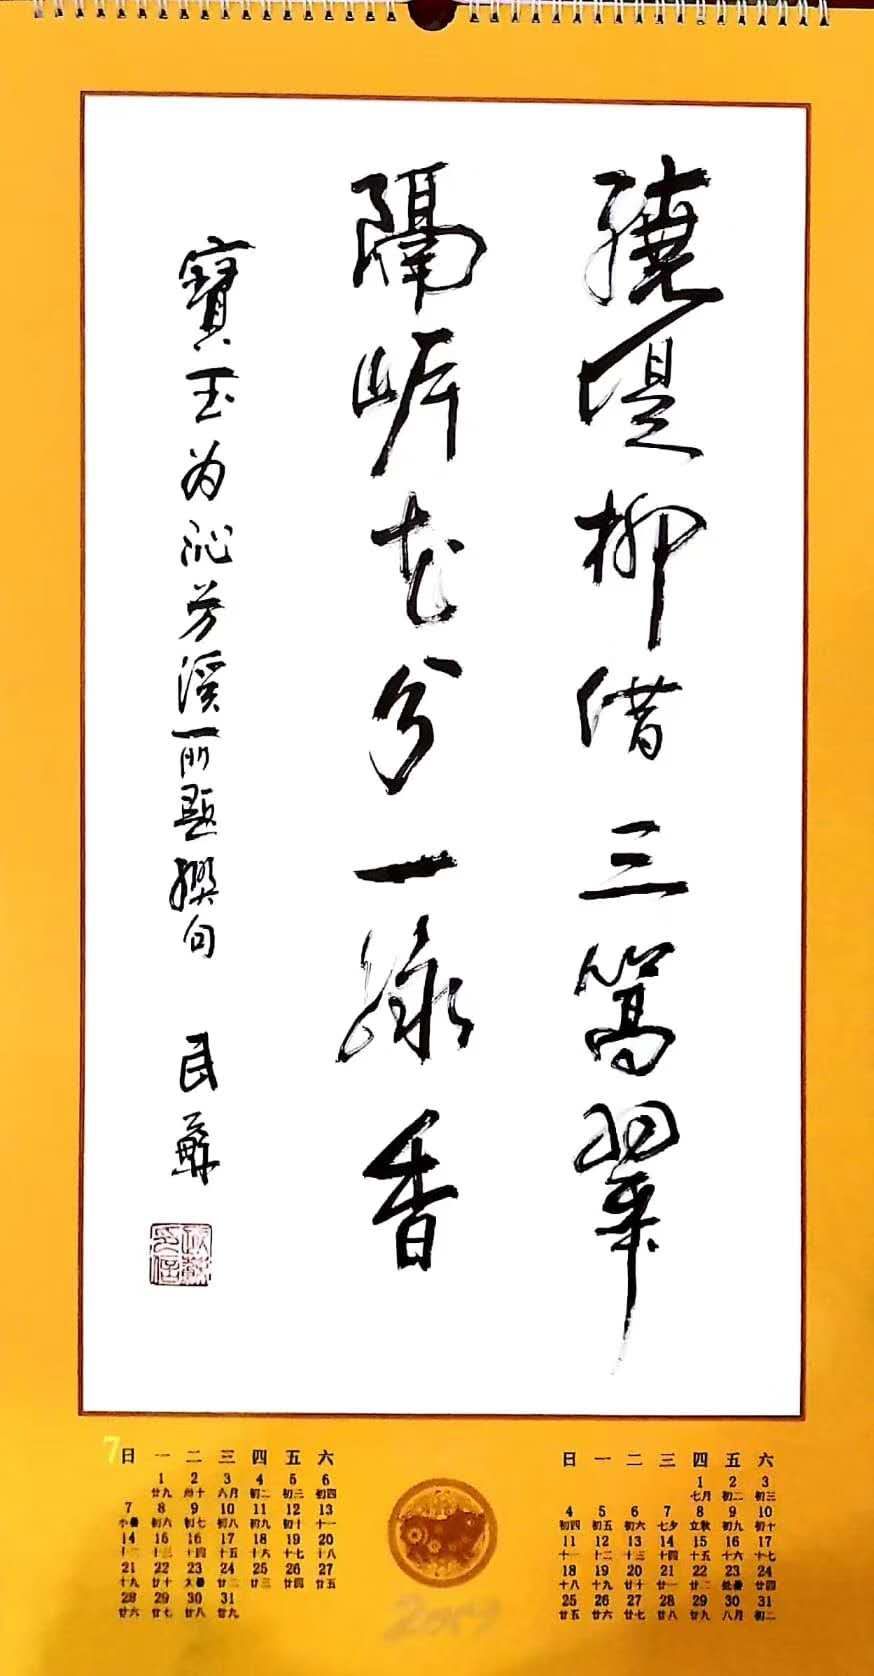 繞堤柳借三篙翠
隔岸花分一脉香
寶玉为沁芳溪所題撰句 民蘇
7
日 一 二 三 四 五 六
1 2 3 4 5 6
廿九 卅十 六月 初二 初三 初四
7 8 9 10 11 12 13
小暑 初六 初七 初八 初九 初十 十一
14 15 16 17 18 19 20
十二 十三 十四 十五 十六 十七 十八
21 22 23 24 25 26 27
十九 廿十 大暑 廿二 廿三 廿四 廿五
28 29 30 31
廿六 廿七 廿八 廿九
2019
日 一 二 三 四 五 六
1 2 3
七月 初二 初三
4 5 6 7 8 9 10
初四 初五 初六 七夕 立秋 初九 初十
11 12 13 14 15 16 17
十一 十二 十三 十四 十五 十六 十七
18 19 20 21 22 23 24
十八 十九 廿十 廿一 廿二 处暑 廿四
25 26 27 28 29 30 31
廿五 廿六 廿七 廿八 廿九 八月 初二